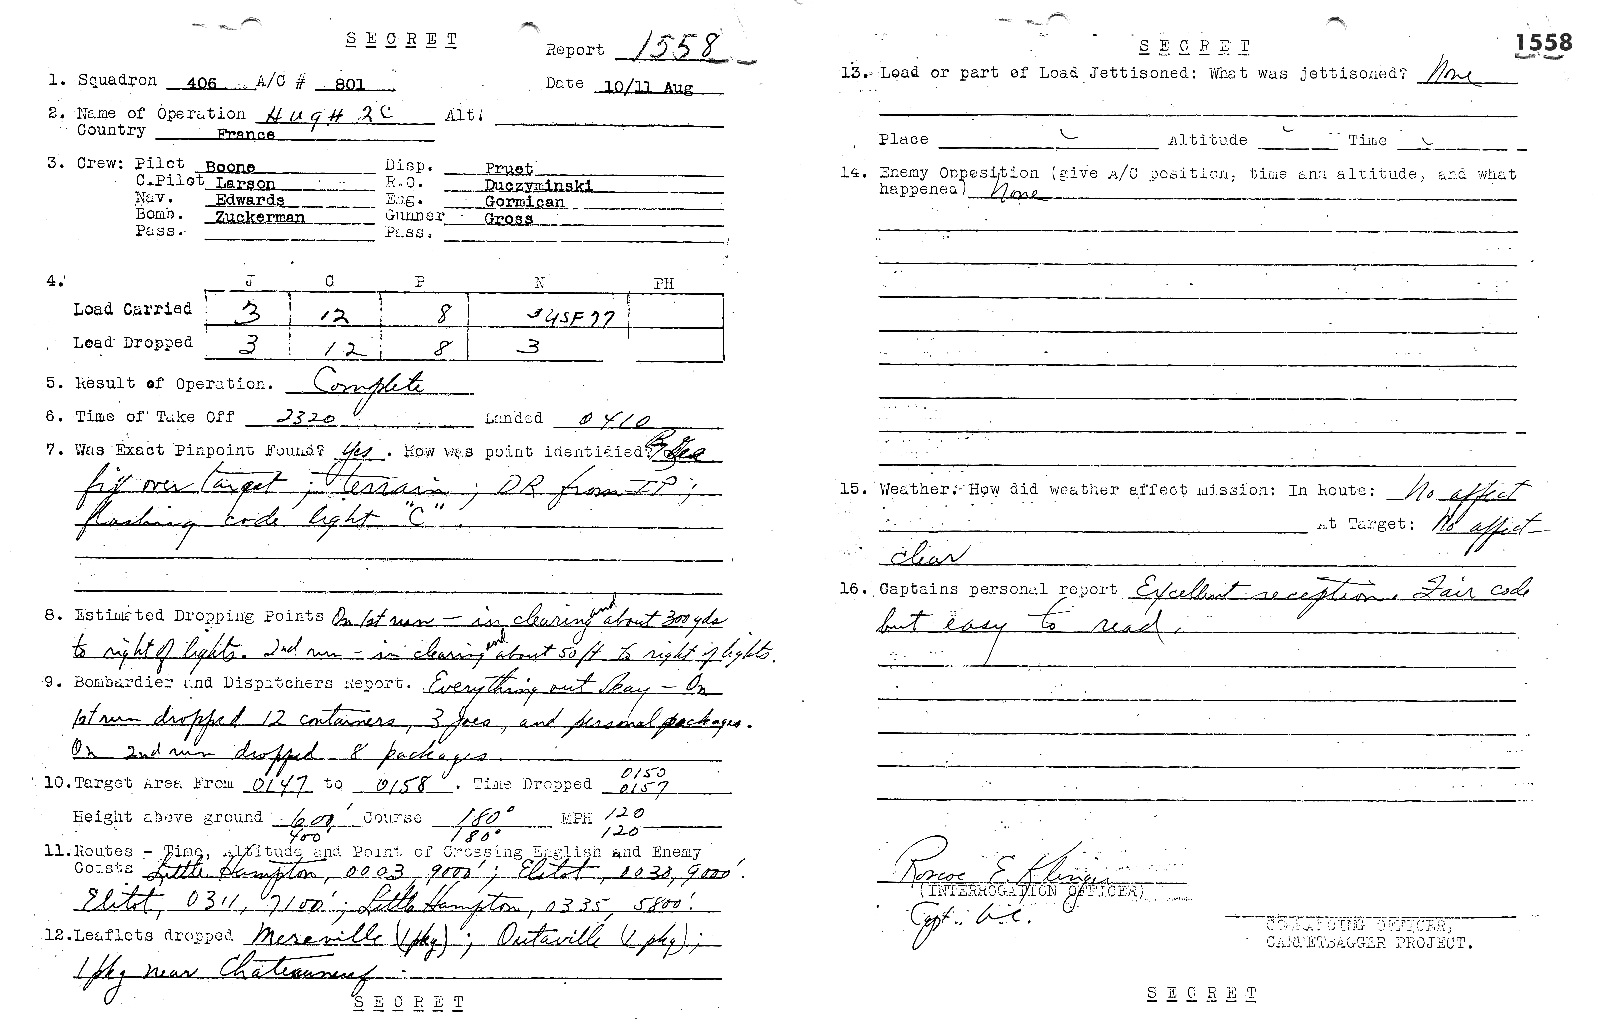 SECRET
Report 1558
1. Squadron 406 A/C # 801 Date 10/11 Aug
2. Name of Operation HUGH 2C Alt:
Country France
3. Crew: Pilot Boone Disp. Pruet
C.Pilot Larson R.O. Duczyminski
Nav. Edwards Eng. Gormican
Bomb. Zuckerman Gunner Gross
Pass. Pass.
4. J C P N PH
Load Carried 3 12 8
Load Dropped 3 12 8 3
5. Result of Operation. Complete
6. Time of Take Off 2320 Landed 0410
7. Was Exact Pinpoint Found? Yes. How was point identified?
fix over target; terrain; DR from IP;
flashing code light "C".
8. Estimated Dropping Points On 1st run - in clearing and about 300 yds
to right of lights. 2nd run - in clearing and about 50 ft to right of lights.
9. Bombardier and Dispatchers Report. Everything out okay - On
1st run dropped 12 containers, 3 joes, and personal packages.
On 2nd run dropped 8 packages.
10. Target Area From 0147 to 0158. Time Dropped 0150
0157
Height above ground 600' Course 180° MPH 120
400' 180° 120
11. Routes - Time, Altitude and Point of Crossing English and Enemy
Coasts Little Hampton, 0003, 9000'; Elitot, 0030, 9000'.
Elitot, 0311, 7100'; Little Hampton, 0335, 5800'.
12. Leaflets dropped Mereville (1 pkg); Outaville (1 pkg);
1 pkg near Chateauneuf
SECRET
SECRET
1558
13. Load or part of Load Jettisoned: What was jettisoned? None
Place Altitude Time
14. Enemy Opposition (give A/C position, time and altitude, and what
happened) None
15. Weather: How did weather affect mission: In Route: No affect
At Target: No affect
clear
16. Captains personal report Excellent reception. Fair code
but easy to read.
Roscoe E. Klinger
(INTERROGATION OFFICER)
Capt. A.C.
COMMANDING OFFICER,
CARPETBAGGER PROJECT.
SECRET